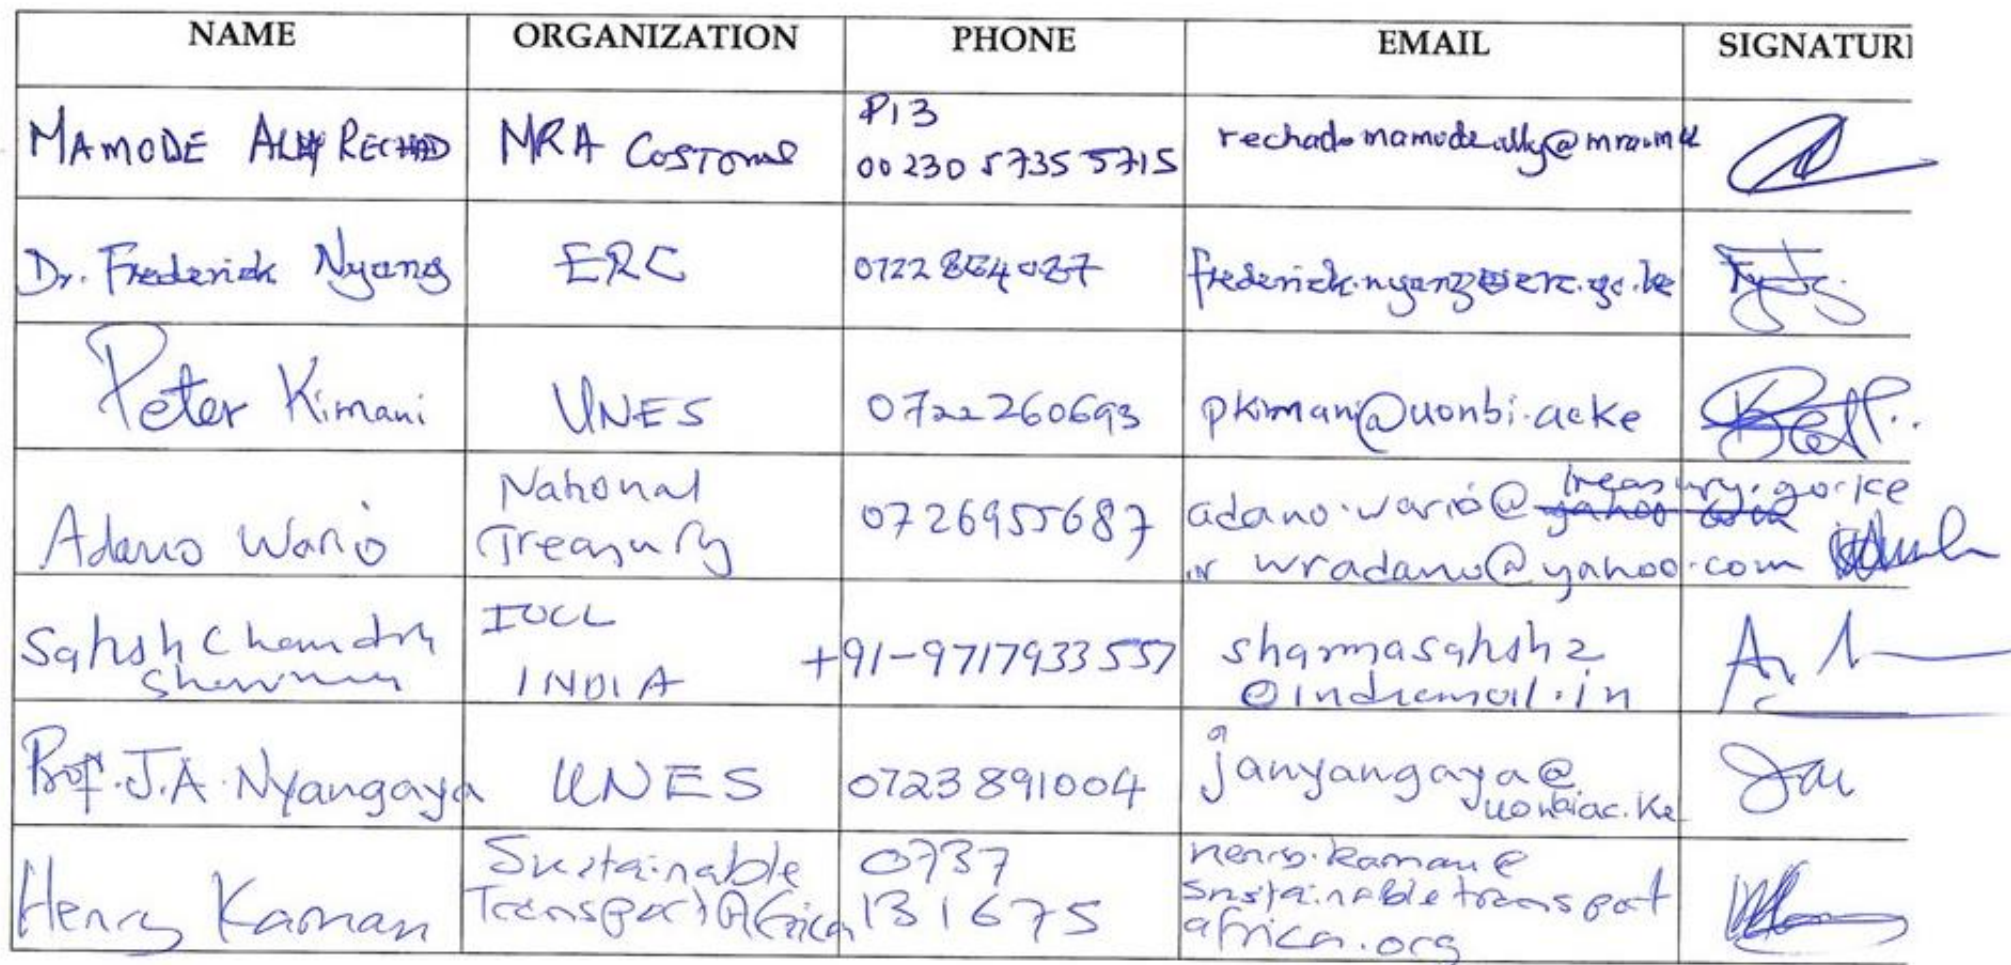 NAME ORGANIZATION PHONE EMAIL SIGNATUR
MAMODE ALLY RECHAD MRA CUSTOMS P13
00 230 5735 5715 rechad.mamode.ally@mra.mu
Dr. Frederick Nyang ERC 0722 864027 frederick.nyang@erc.go.ke
Peter Kimani UNES 0722260693 pkimani@uonbi.ac.ke
Adano Wario National
Treasury 0726955687 adano.wario@ treasury.go.ke
yahoo com
or wradano@yahoo.com
Satish Chandra
Sharma IOCL
INDIA +91-9717933557 sharmasatish2
@indiamail.in
Prof. J.A. Nyangaya UNES 0723891004 janyangaya@
uonbi.ac.ke
Henry Kamau Sustainable
Transport Africa 0737
131675 henry.kamau@
sustainabletransport
africa.org